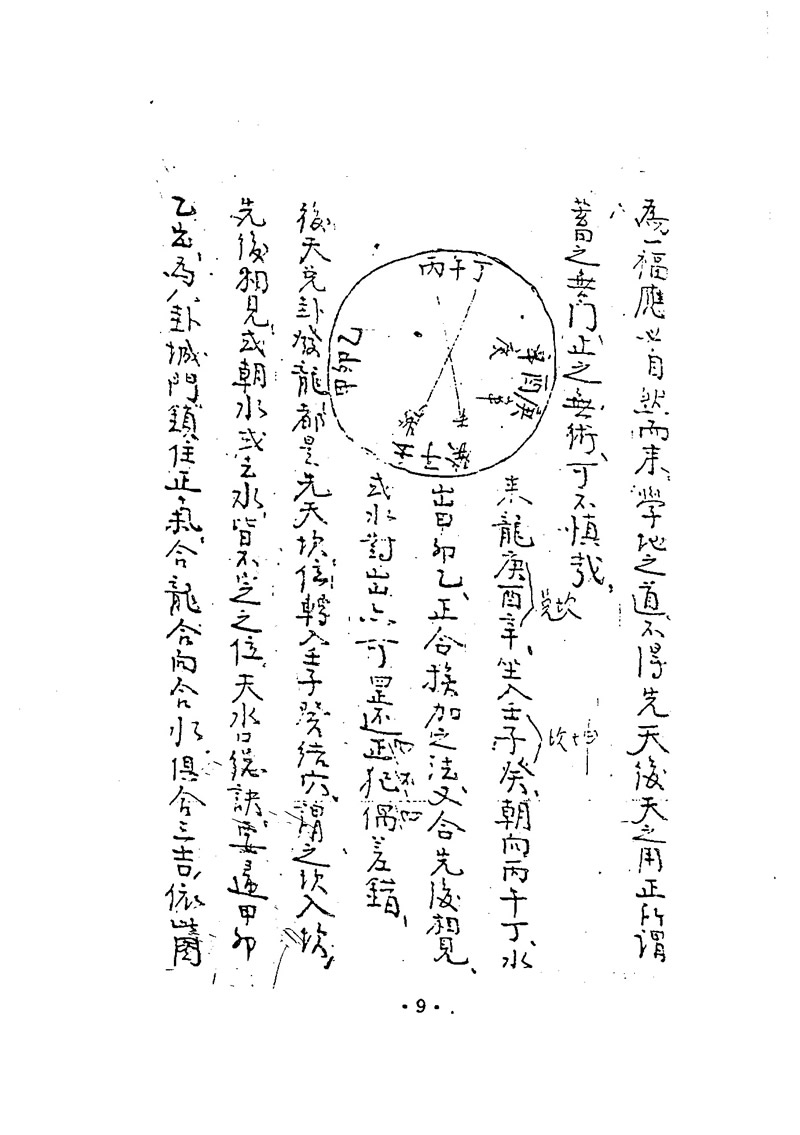 為一福應必自然而来學地之道不得先天後天之用正所谓
蓄之無门止之無術可不慎哉
丙午丁
乙卯甲
来龍庚酉辛坐入壬子癸朝向丙午丁水
兑坎
坎坤
出甲卯乙正合挨加之法又合先後相見
或水對出亦可罡还正犯偶差錯
後天兑卦發龍都是先天坎位轉入壬子癸结穴謂之坎入坎
先後相見或朝水或去水皆不岂之位天水口總訣要邊甲卯
乙出為八卦城門鎖住正氣合龍合向合水俱合三吉依圖
·9·